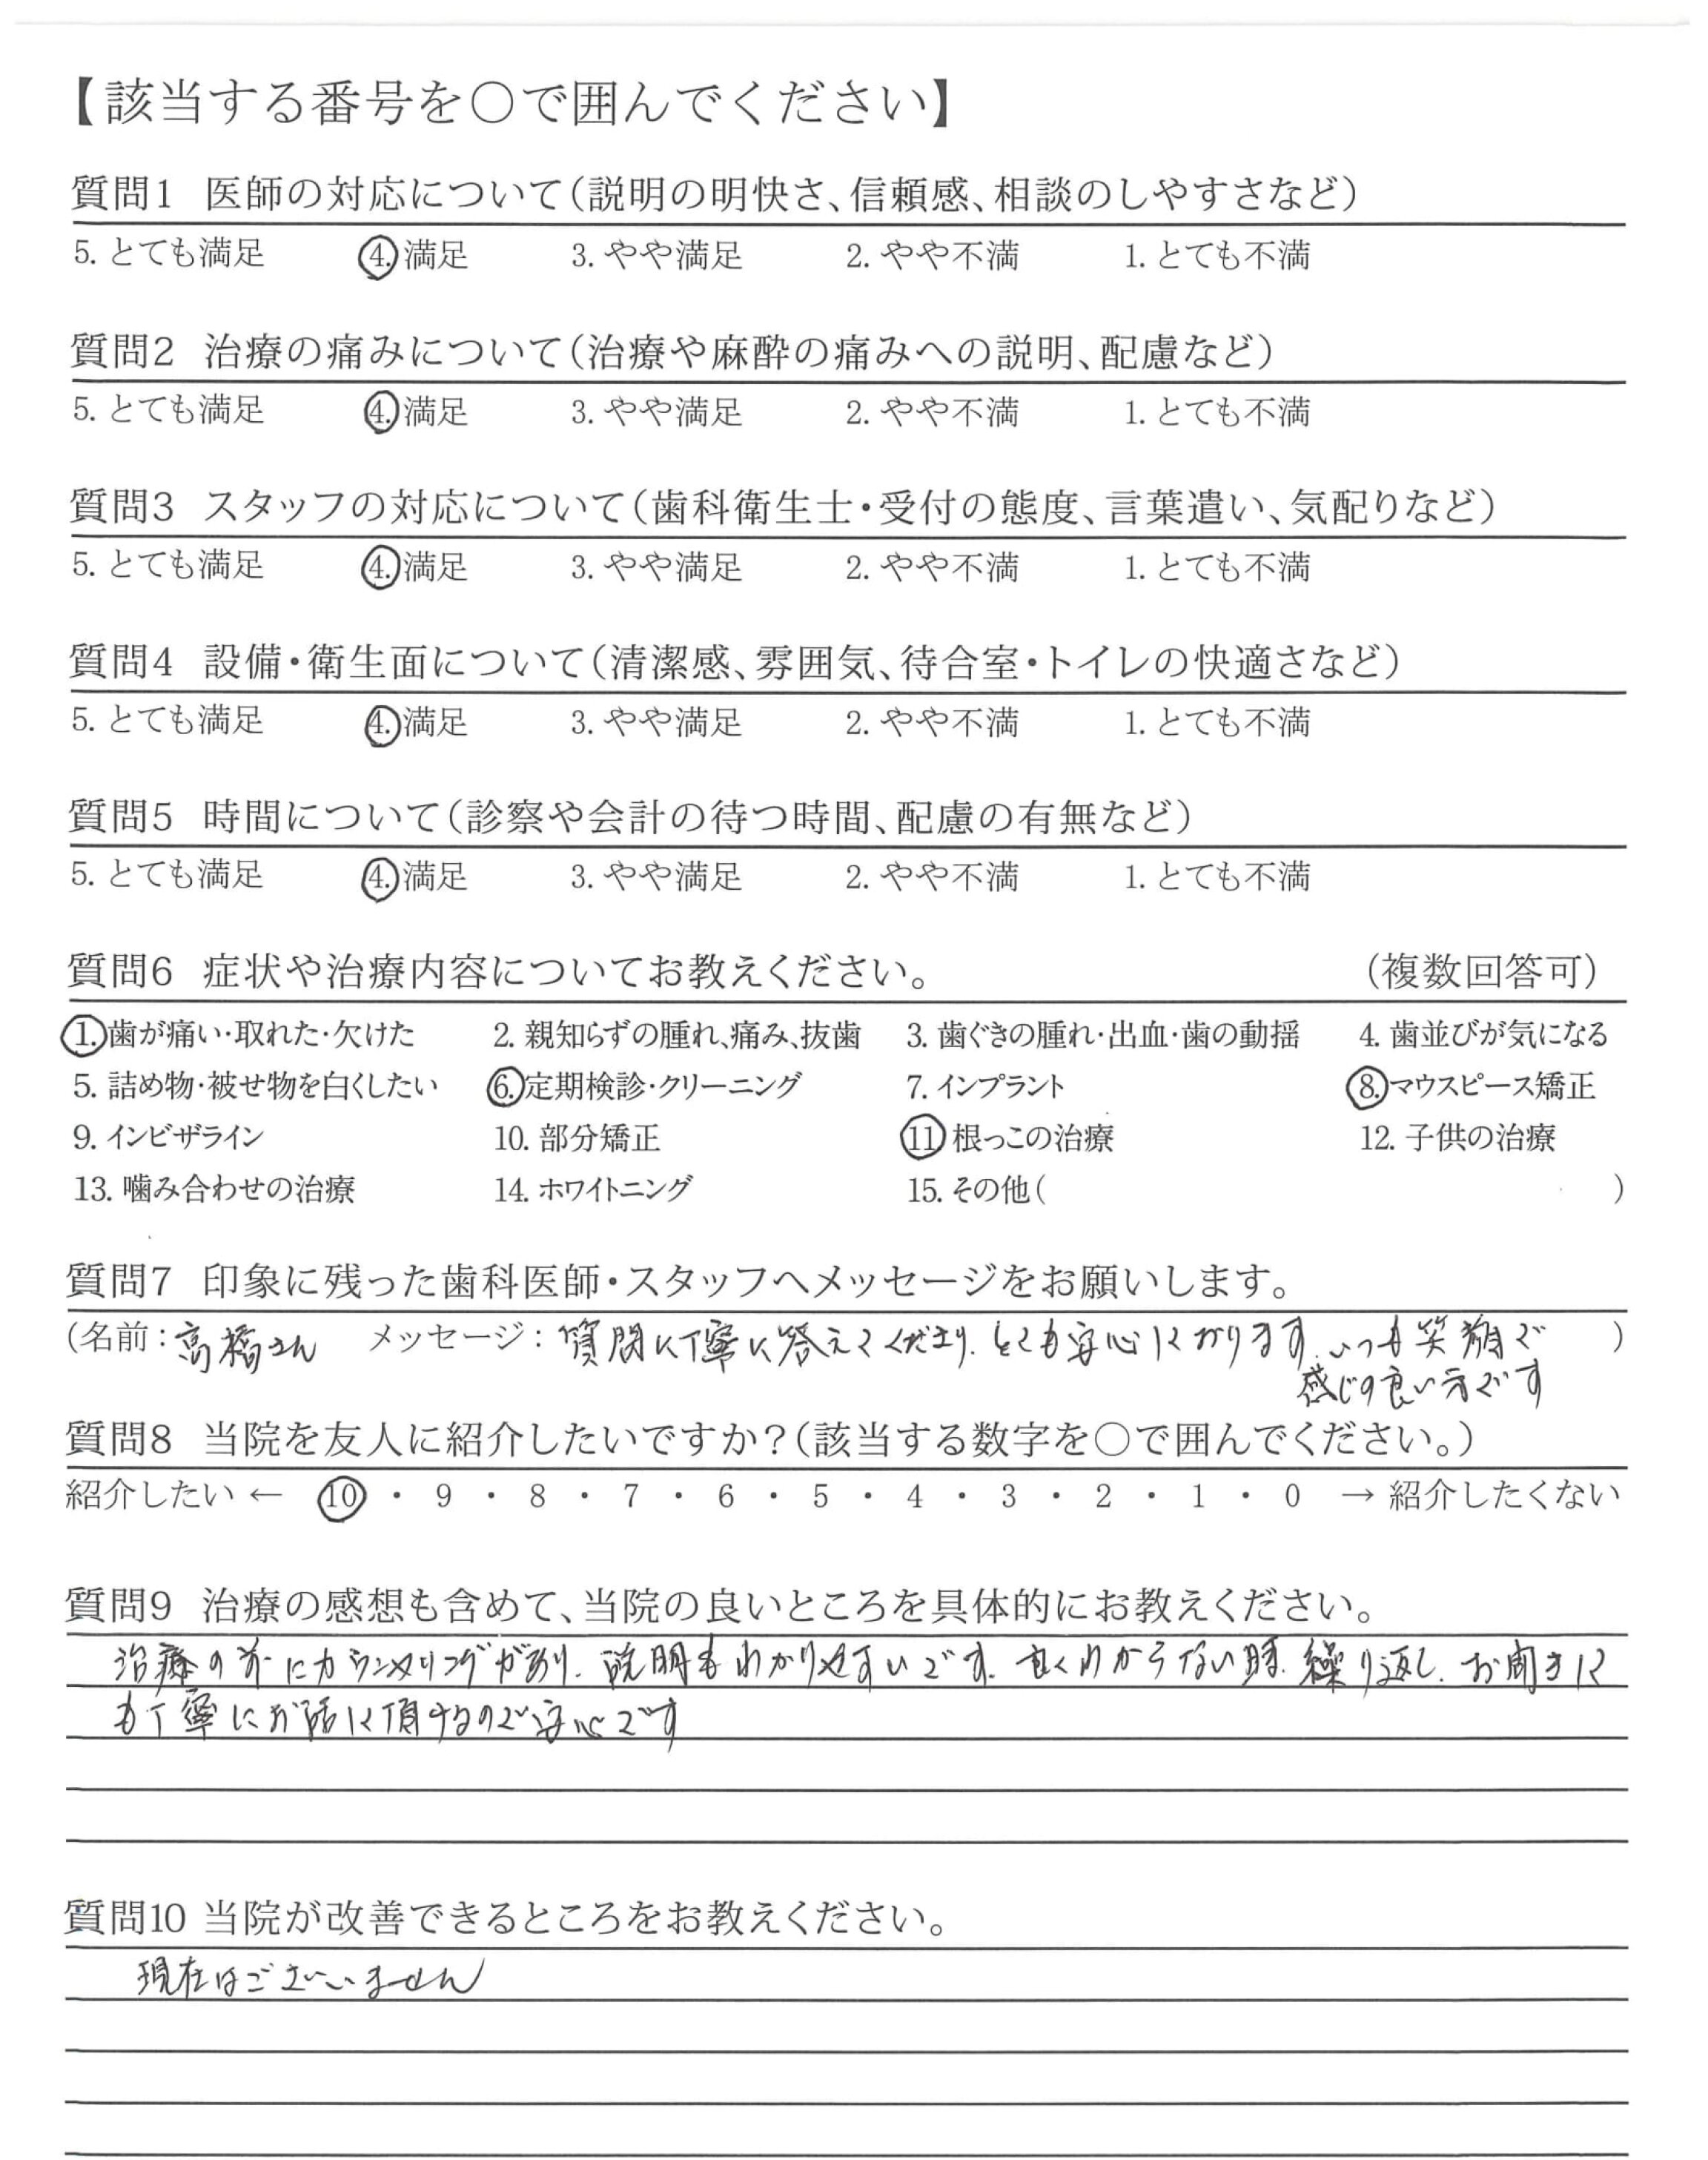 【該当する番号を○で囲んでください】
質問1 医師の対応について(説明の明快さ、信頼感、相談のしやすさなど)
5. とても満足 4. 満足 3. やや満足 2. やや不満 1. とても不満
質問2 治療の痛みについて(治療や麻酔の痛みへの説明、配慮など)
5. とても満足 4. 満足 3. やや満足 2. やや不満 1. とても不満
質問3 スタッフの対応について(歯科衛生士・受付の態度、言葉遣い、気配りなど)
5. とても満足 4. 満足 3. やや満足 2. やや不満 1. とても不満
質問4 設備・衛生面について(清潔感、雰囲気、待合室・トイレの快適さなど)
5. とても満足 4. 満足 3. やや満足 2. やや不満 1. とても不満
質問5 時間について(診察や会計の待つ時間、配慮の有無など)
5. とても満足 4. 満足 3. やや満足 2. やや不満 1. とても不満
質問6 症状や治療内容についてお教えください。 (複数回答可)
1. 歯が痛い・取れた・欠けた 2. 親知らずの腫れ、痛み、抜歯 3. 歯ぐきの腫れ・出血・歯の動揺 4. 歯並びが気になる
5. 詰め物・被せ物を白くしたい 6. 定期検診・クリーニング 7. インプラント 8. マウスピース矯正
9. インビザライン 10. 部分矯正 11 根っこの治療 12. 子供の治療
13. 噛み合わせの治療 14. ホワイトニング 15. その他( )
質問7 印象に残った歯科医師・スタッフへメッセージをお願いします。
(名前:高橋さん メッセージ:質問に丁寧に答えてくださり、とても安心しております。いつも笑顔で )
感じの良い方です
質問8 当院を友人に紹介したいですか?(該当する数字を○で囲んでください。)
紹介したい ← 10 ・ 9 ・ 8 ・ 7 ・ 6 ・ 5 ・ 4 ・ 3 ・ 2 ・ 1 ・ 0 → 紹介したくない
質問9 治療の感想も含めて、当院の良いところを具体的にお教えください。
治療の前にカウンセリングがあり、説明もわかりやすいです。良くわからない時、繰り返し、お聞きして
も丁寧にお話して頂けるので安心です
質問10 当院が改善できるところをお教えください。
現在はございません